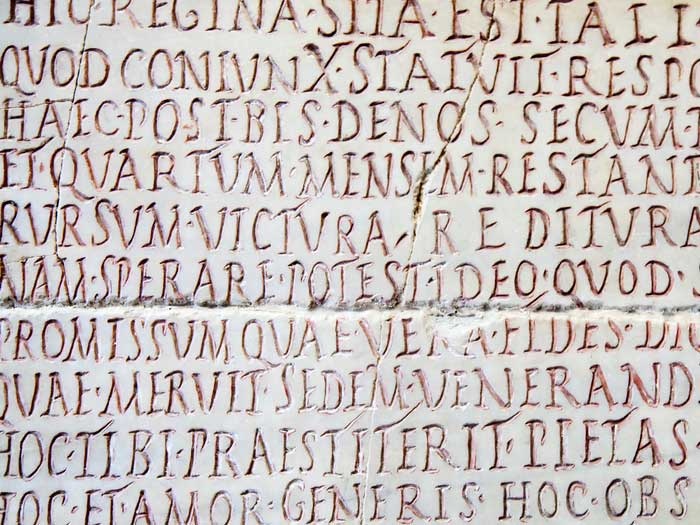 HIC·REGINA·SITA·EST·TALI
QUOD CONIUNX·STATVIT·RESPO
HAEC·POST·BIS·DENOS·SECVM·
ET·QUARTVM·MENSEM·RESTAN
RVRSVM·VICTVRA·REDITVRA
NAM·SPERARE·POTEST·IDEO·QVOD·
PROMISSVM QUAE VERA·FIDES·DI
QVAE·MERVIT SEDEM·VENERAND
HOC·TIBI·PRAESTITERIT·PIETAS
HOC·ET·AMOR·GENERIS·HOC·OBS